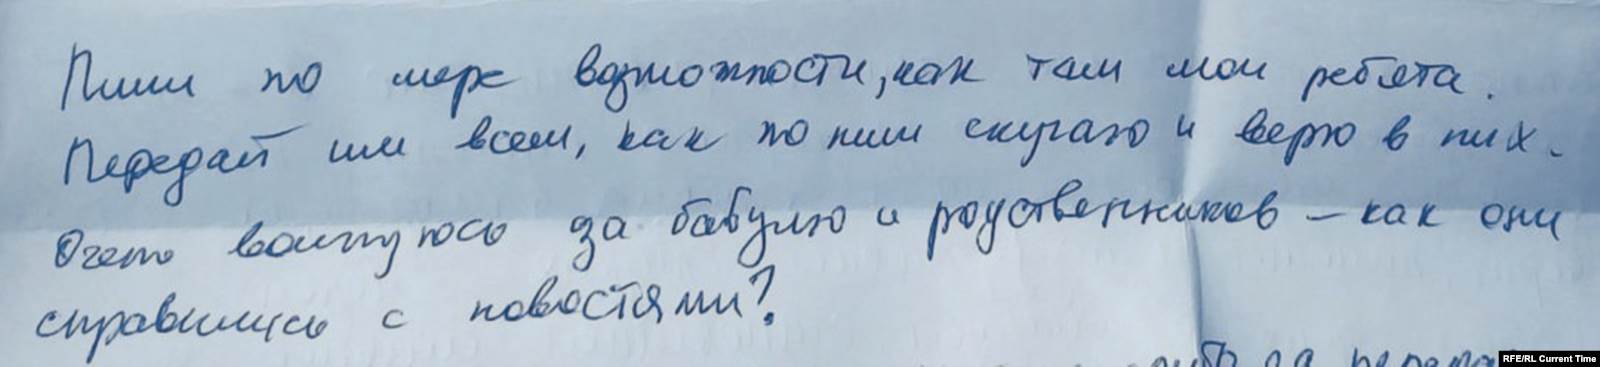 Пиши по мере возможности, как там мои ребята.
Передай им всем, как по ним скучаю и верю в них.
Очень волнуюсь за бабулю и родственников – как они
справились с новостями?
RFE/RL Current Time